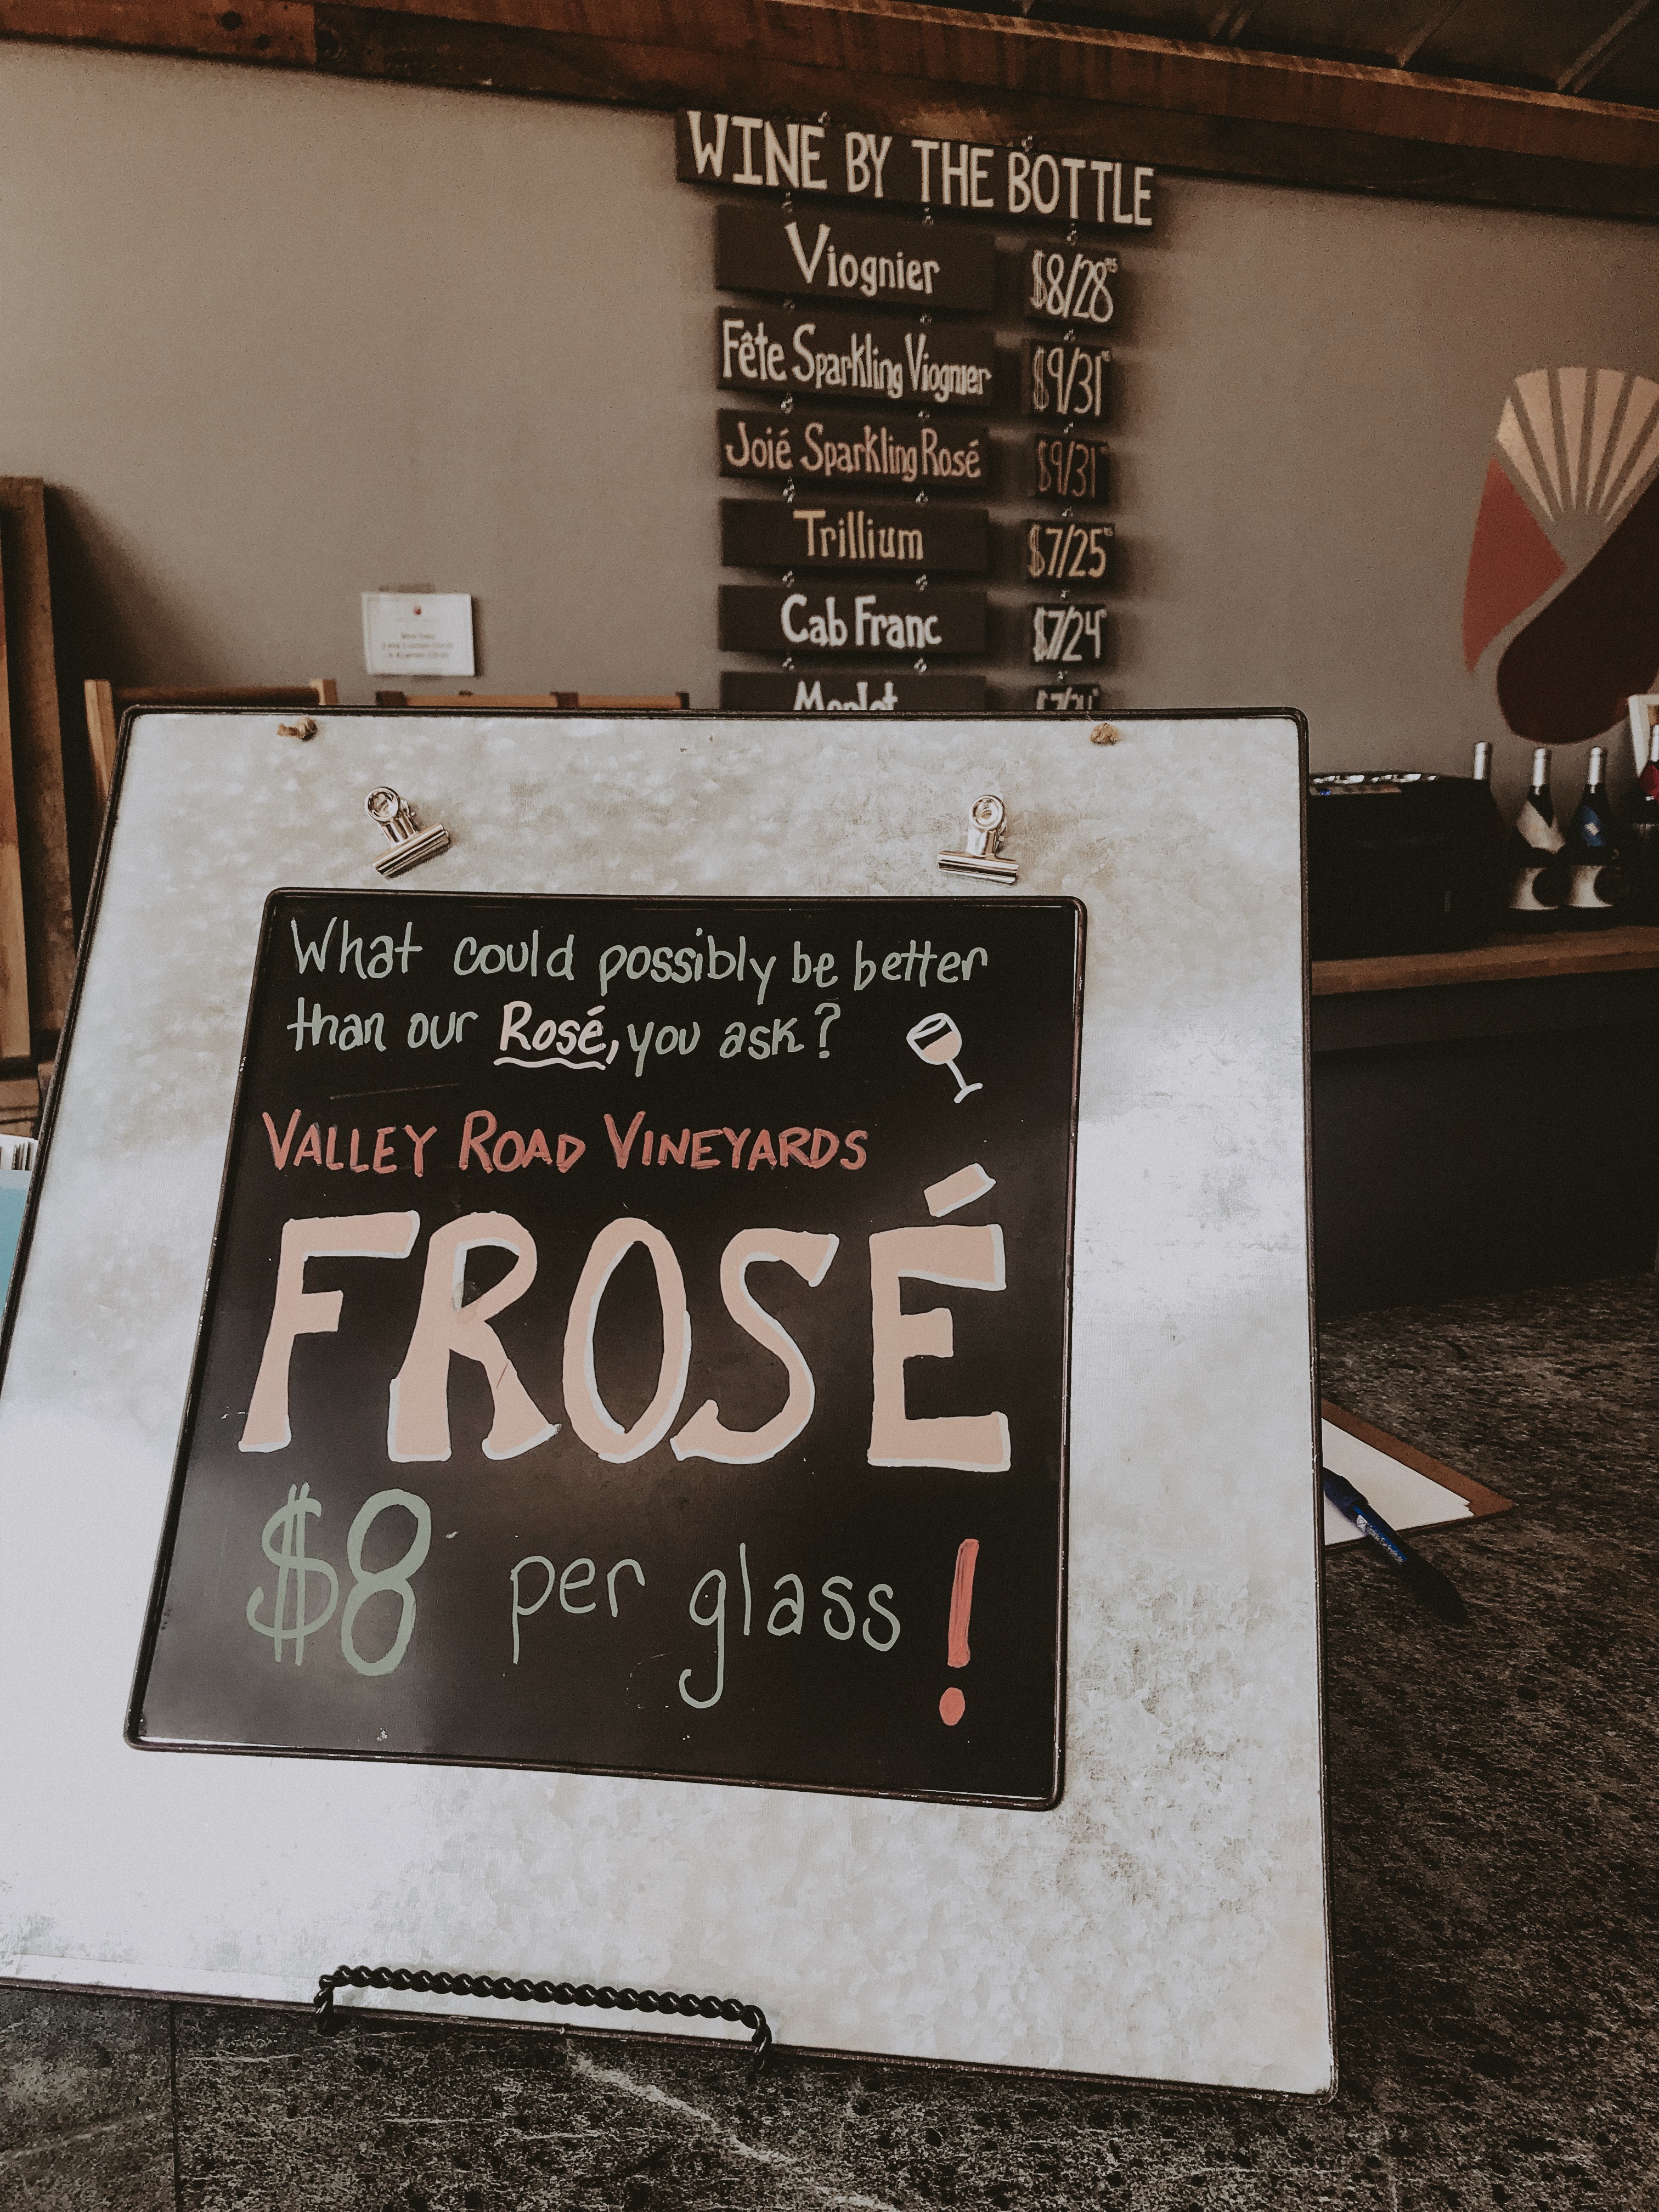 WINE BY THE BOTTLE
Viognier $8/28
Fête Sparkling Viognier $9/31
Joié Sparkling Rosé $9/31
Trillium $7/25
Cab Franc $7/24
Merlot
What could possibly be better
than our Rosé, you ask?
VALLEY ROAD VINEYARDS
FROSÉ
$8 per glass!